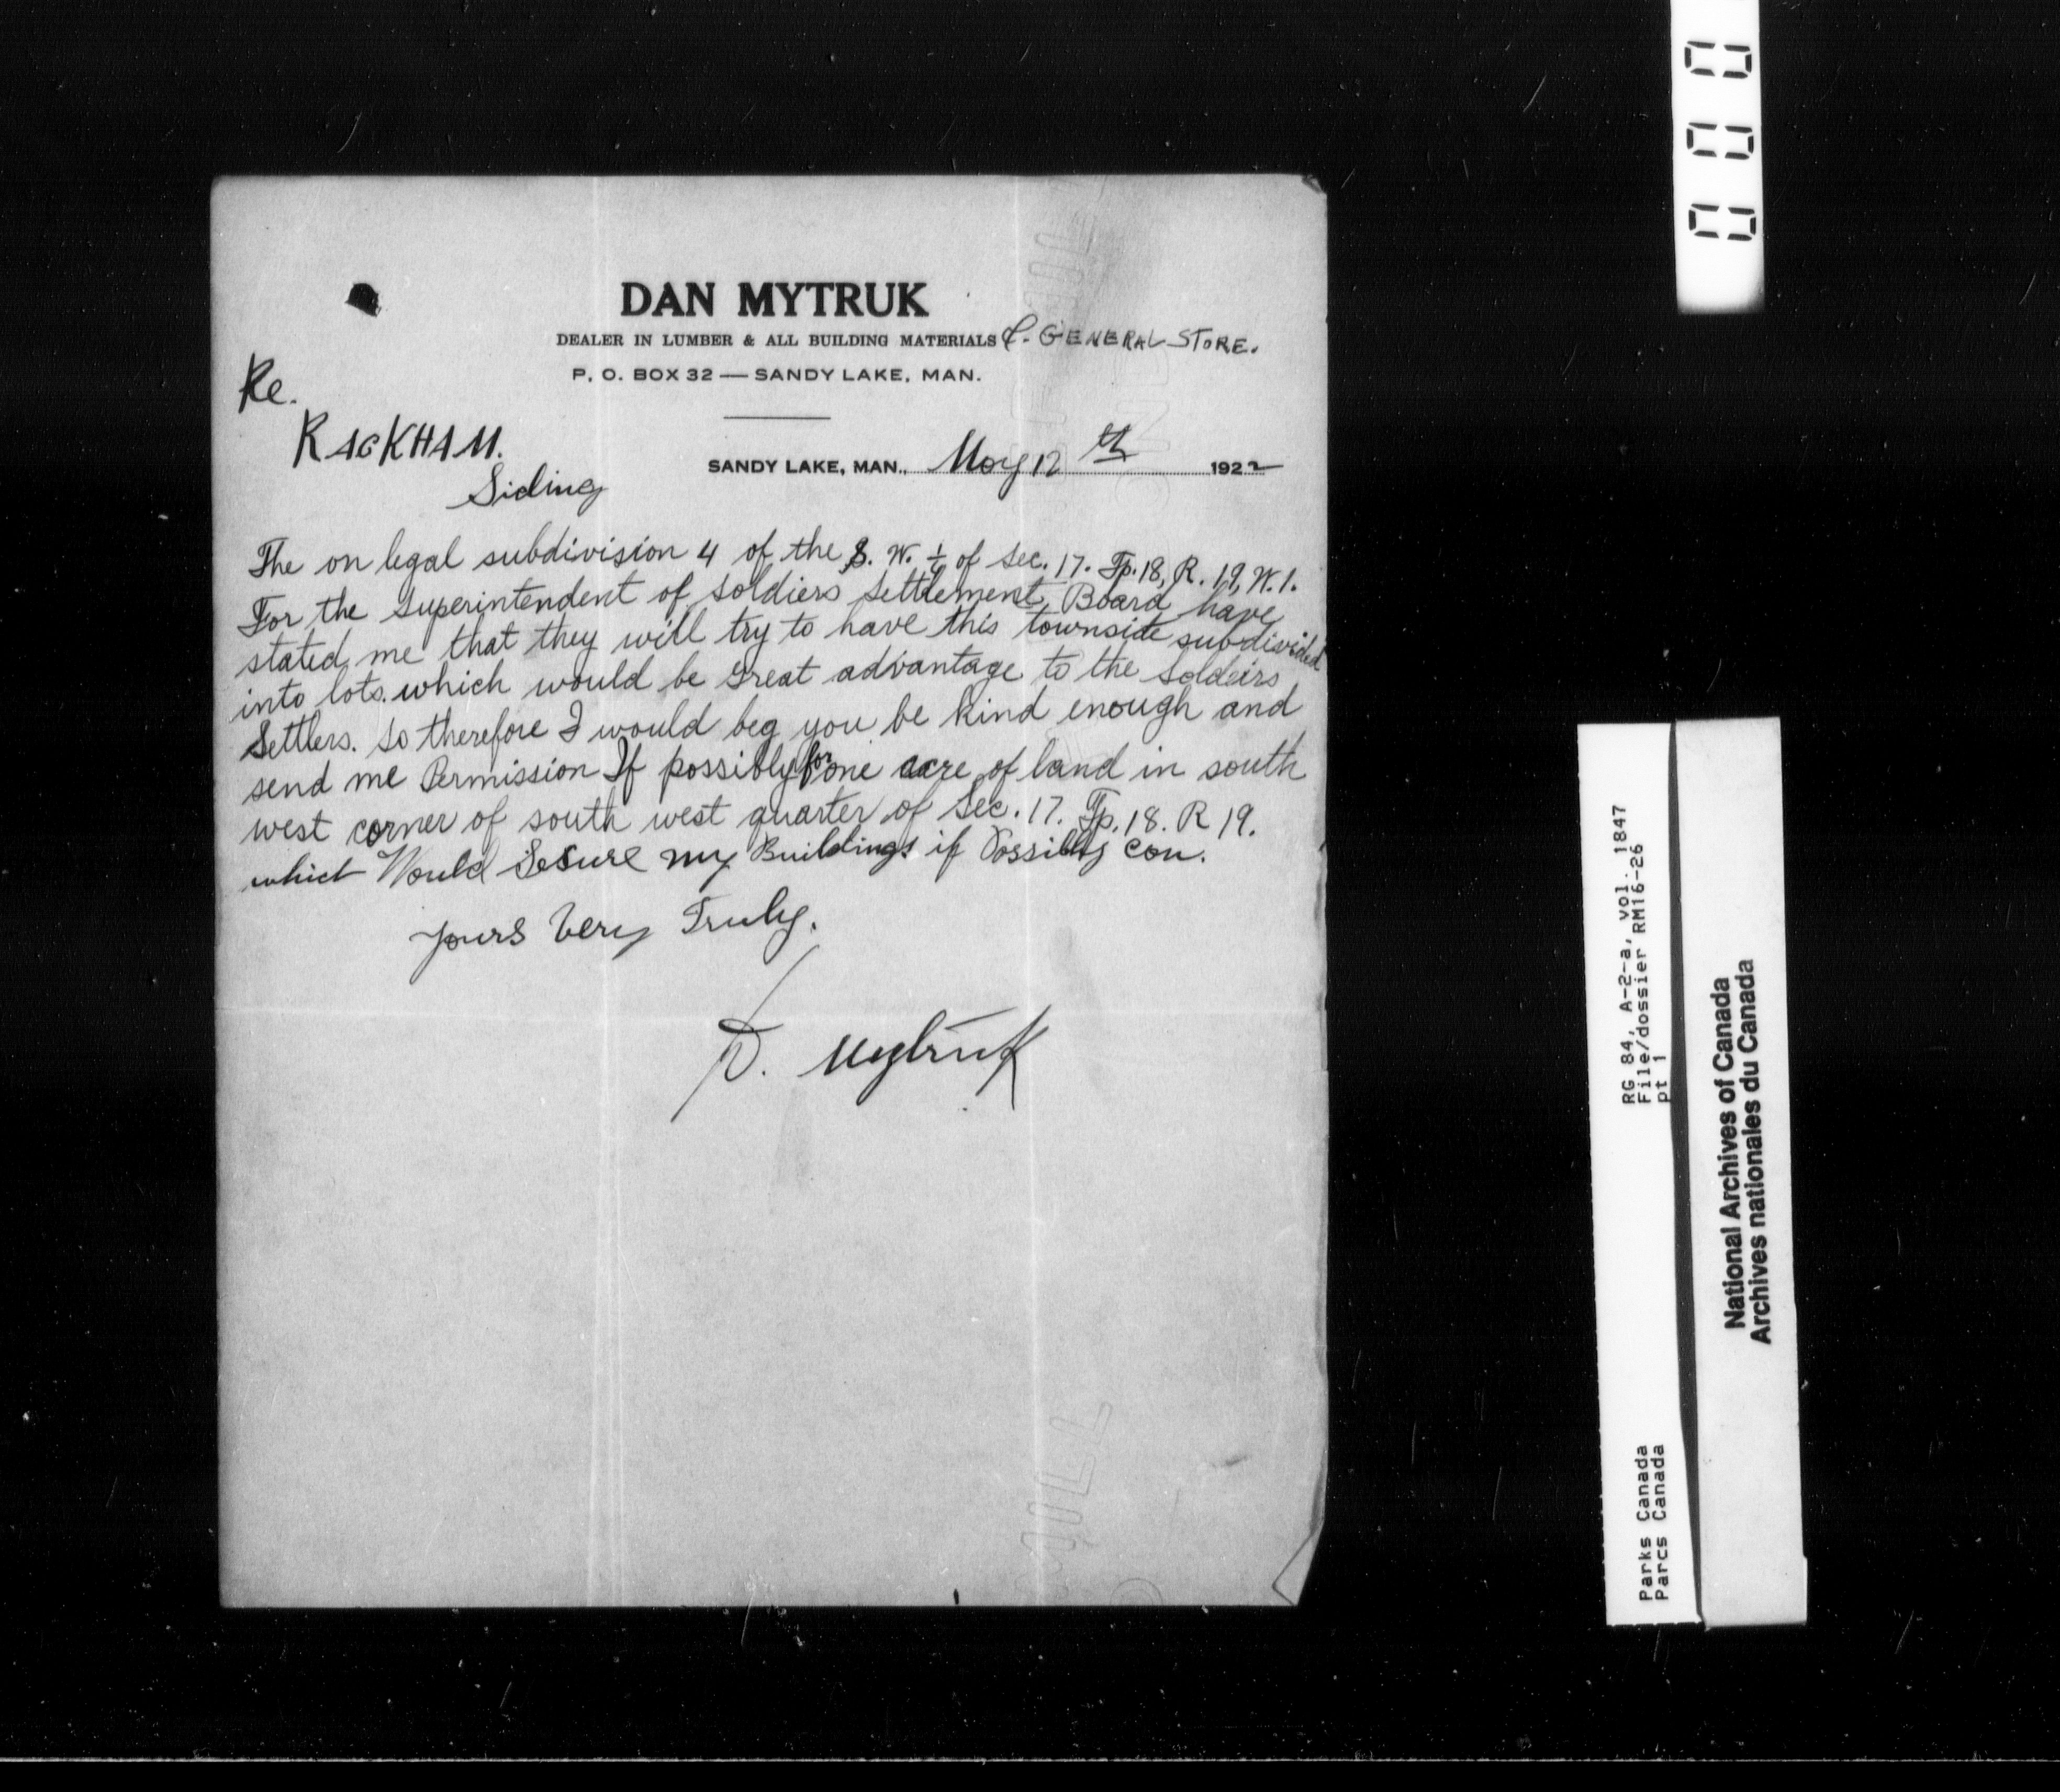 DAN MYTRUK
DEALER IN LUMBER & ALL BUILDING MATERIALS &. GENERAL STORE.
P. O. BOX 32 — SANDY LAKE, MAN.
Re.
RACKHAM.
Siding
SANDY LAKE, MAN., May 12th 1922
The on legal subdivision 4 of the S. W. 1/4 of Sec. 17. Tp. 18, R. 19, W. 1.
For the Superintendent of Soldiers Settlement Board have
stated me that they will try to have this townside subdivided
into lots. which would be great advantage to the Soldeirs
Settlers. So therefore I would beg you be kind enough and
send me Permission If possibly for one acre of land in south
west corner of south west quarter of Sec. 17. Tp. 18. R 19.
which Would Secure my Buildings if Possibly con.
Yours Very Truly.
D. Mytruk
RG 84, A-2-a, vol. 1847
File/dossier RM16-26
pt 1
Parks Canada
Parcs Canada
National Archives of Canada
Archives nationales du Canada